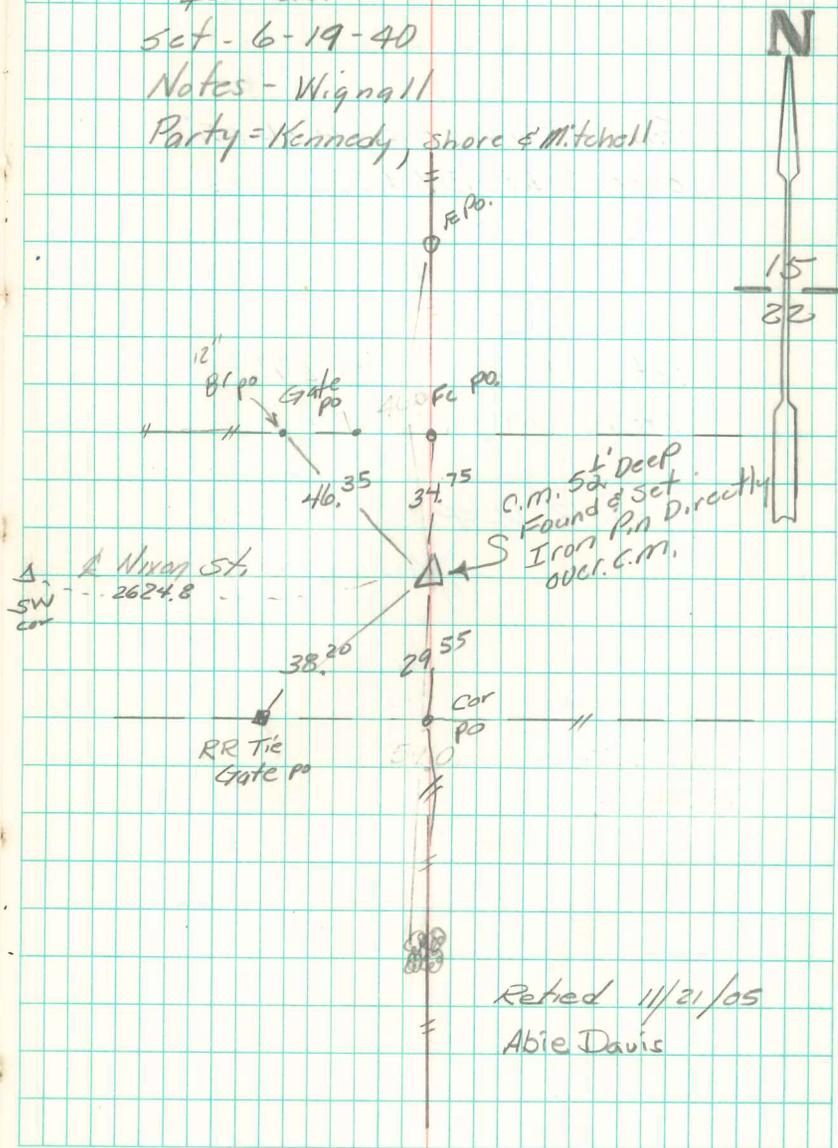 Set - 6-19-40
Notes - Wignall
Party = Kennedy, Shore & Mitchell
N
Fc Po.
15
22
12"
8' po
Gate
po
Fc Po.
46.35
34.75
C.M. 5 1/2' Deep
Found & Set
Iron Pin Directly
over C.M.
Δ
SW
cor
℄ Nixon St.
2624.8
38.20
29.55
Cor
po
RR Tie
Gate po
Retied 11/21/05
Abie Davis